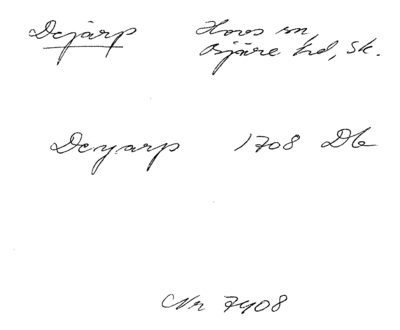 Dejarp Hovs sn,
Bjäre hd, Sk.
Deyarp 1708 Db
Nr 7408